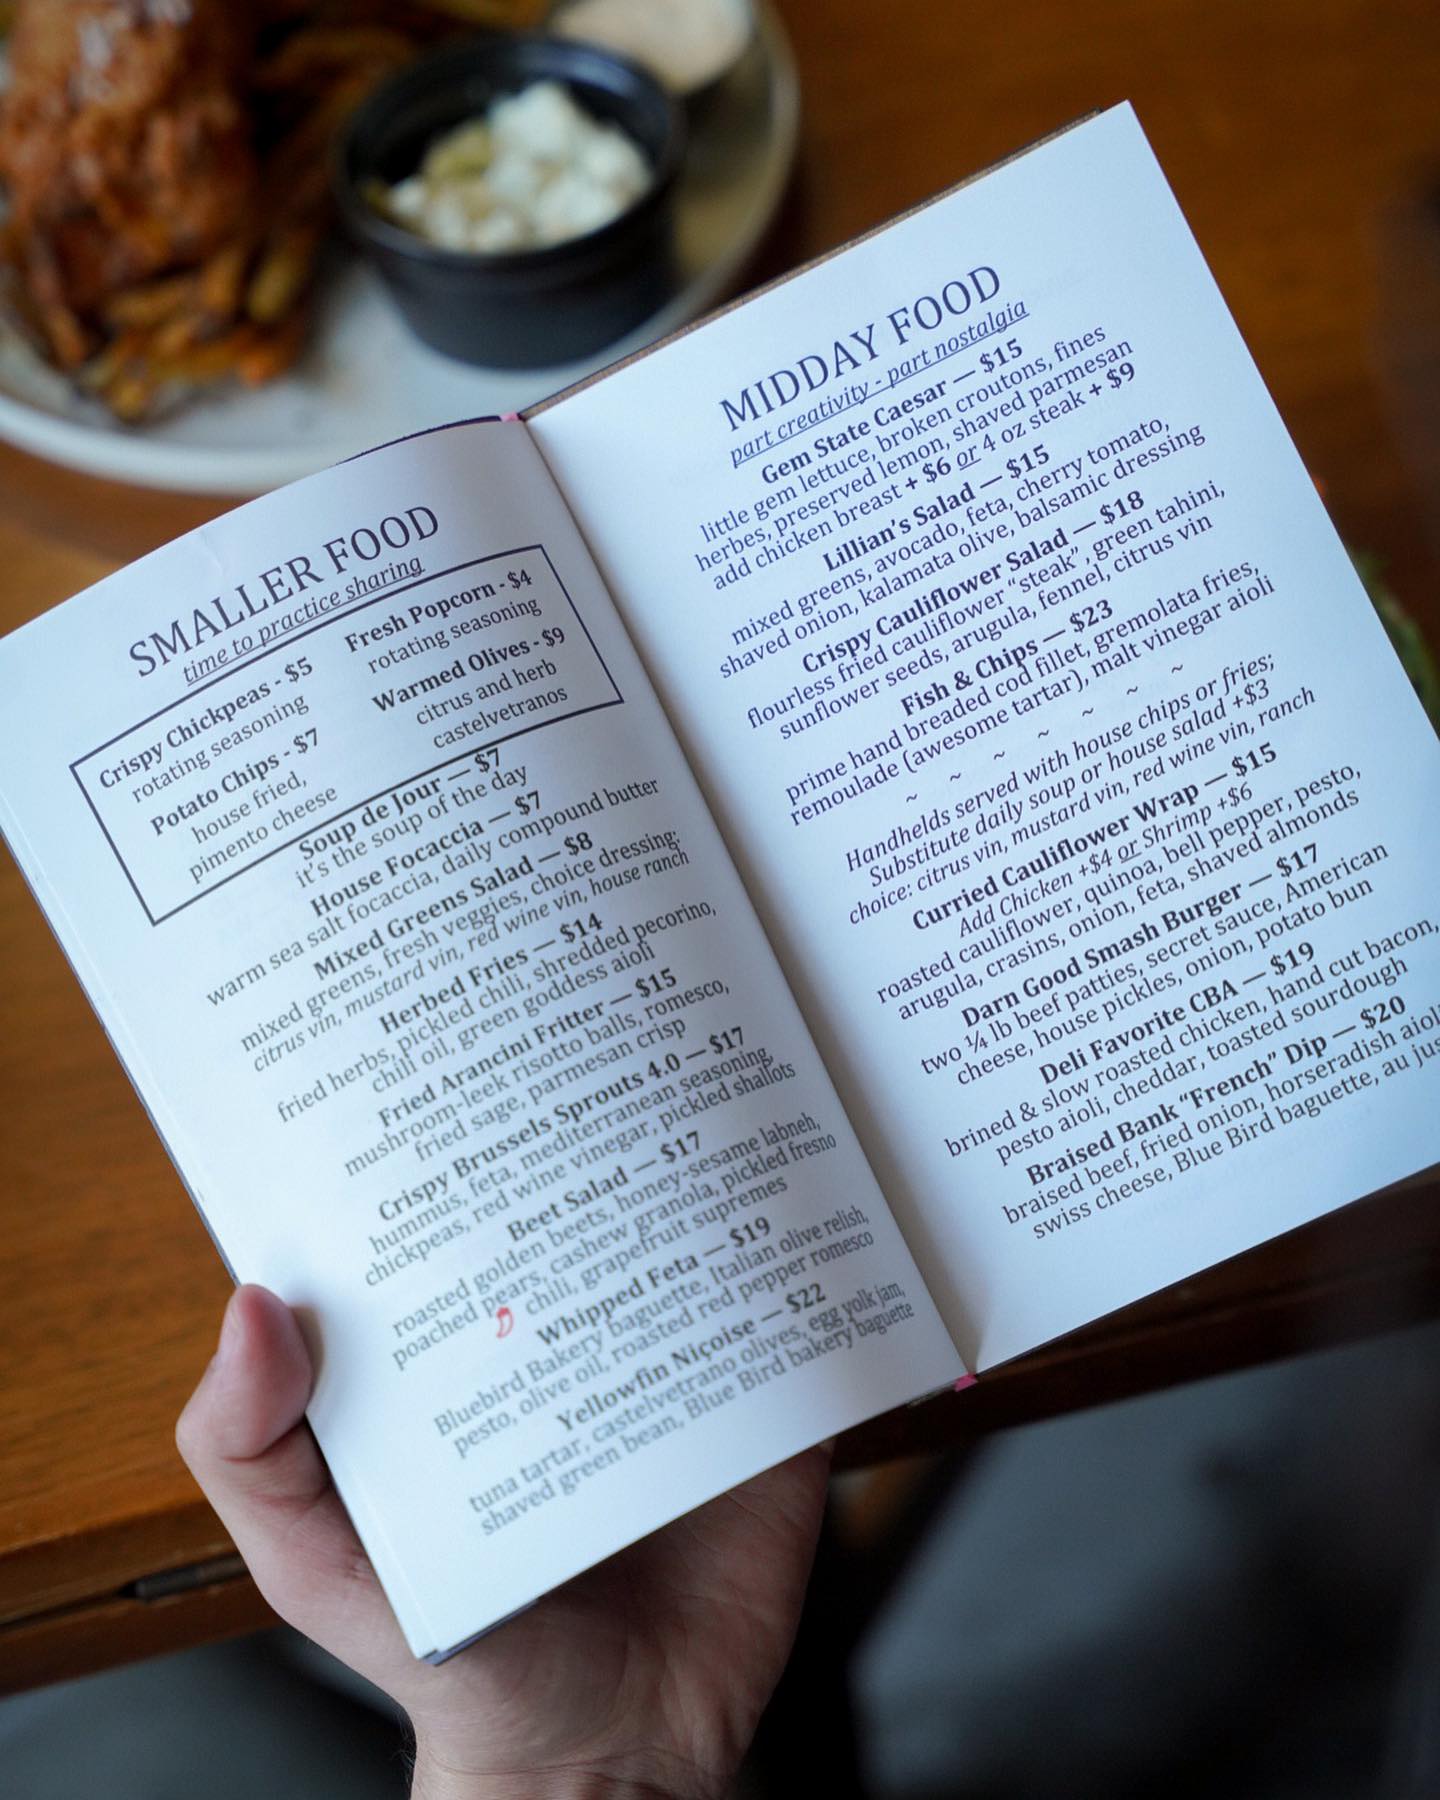 SMALLER FOOD
time to practice sharing
Crispy Chickpeas - $5
rotating seasoning
Potato Chips - $7
house fried,
pimento cheese
Fresh Popcorn - $4
rotating seasoning
Warmed Olives - $9
citrus and herb
castelvetranos
Soup de Jour — $7
it's the soup of the day
House Focaccia — $7
warm sea salt focaccia, daily compound butter
Mixed Greens Salad — $8
mixed greens, fresh veggies, choice dressing:
citrus vin, mustard vin, red wine vin, house ranch
Herbed Fries — $14
fried herbs, pickled chili, shredded pecorino,
chili oil, green goddess aioli
Fried Arancini Fritter — $15
mushroom-leek risotto balls, romesco,
fried sage, parmesan crisp
Crispy Brussels Sprouts 4.0 — $17
hummus, feta, mediterranean seasoning,
chickpeas, red wine vinegar, pickled shallots
Beet Salad — $17
roasted golden beets, honey-sesame labneh,
poached pears, cashew granola, pickled fresno
chili, grapefruit supremes
Whipped Feta — $19
Bluebird Bakery baguette, Italian olive relish,
pesto, olive oil, roasted red pepper romesco
Yellowfin Niçoise — $22
tuna tartar, castelvetrano olives, egg yolk jam,
shaved green bean, Blue Bird bakery baguette
MIDDAY FOOD
part creativity - part nostalgia
Gem State Caesar — $15
little gem lettuce, broken croutons, fines
herbes, preserved lemon, shaved parmesan
add chicken breast + $6 or 4 oz steak + $9
Lillian's Salad — $15
mixed greens, avocado, feta, cherry tomato,
shaved onion, kalamata olive, balsamic dressing
Crispy Cauliflower Salad — $18
flourless fried cauliflower "steak", green tahini,
sunflower seeds, arugula, fennel, citrus vin
Fish & Chips — $23
prime hand breaded cod fillet, gremolata fries,
remoulade (awesome tartar), malt vinegar aioli
~ ~ ~ ~ ~ ~ ~
Handhelds served with house chips or fries;
Substitute daily soup or house salad +$3
choice: citrus vin, mustard vin, red wine vin, ranch
Curried Cauliflower Wrap — $15
Add Chicken +$4 or Shrimp +$6
roasted cauliflower, quinoa, bell pepper, pesto,
arugula, crasins, onion, feta, shaved almonds
Darn Good Smash Burger — $17
two ¼ lb beef patties, secret sauce, American
cheese, house pickles, onion, potato bun
Deli Favorite CBA — $19
brined & slow roasted chicken, hand cut bacon,
pesto aioli, cheddar, toasted sourdough
Braised Bank "French" Dip — $20
braised beef, fried onion, horseradish aioli
swiss cheese, Blue Bird baguette, au jus